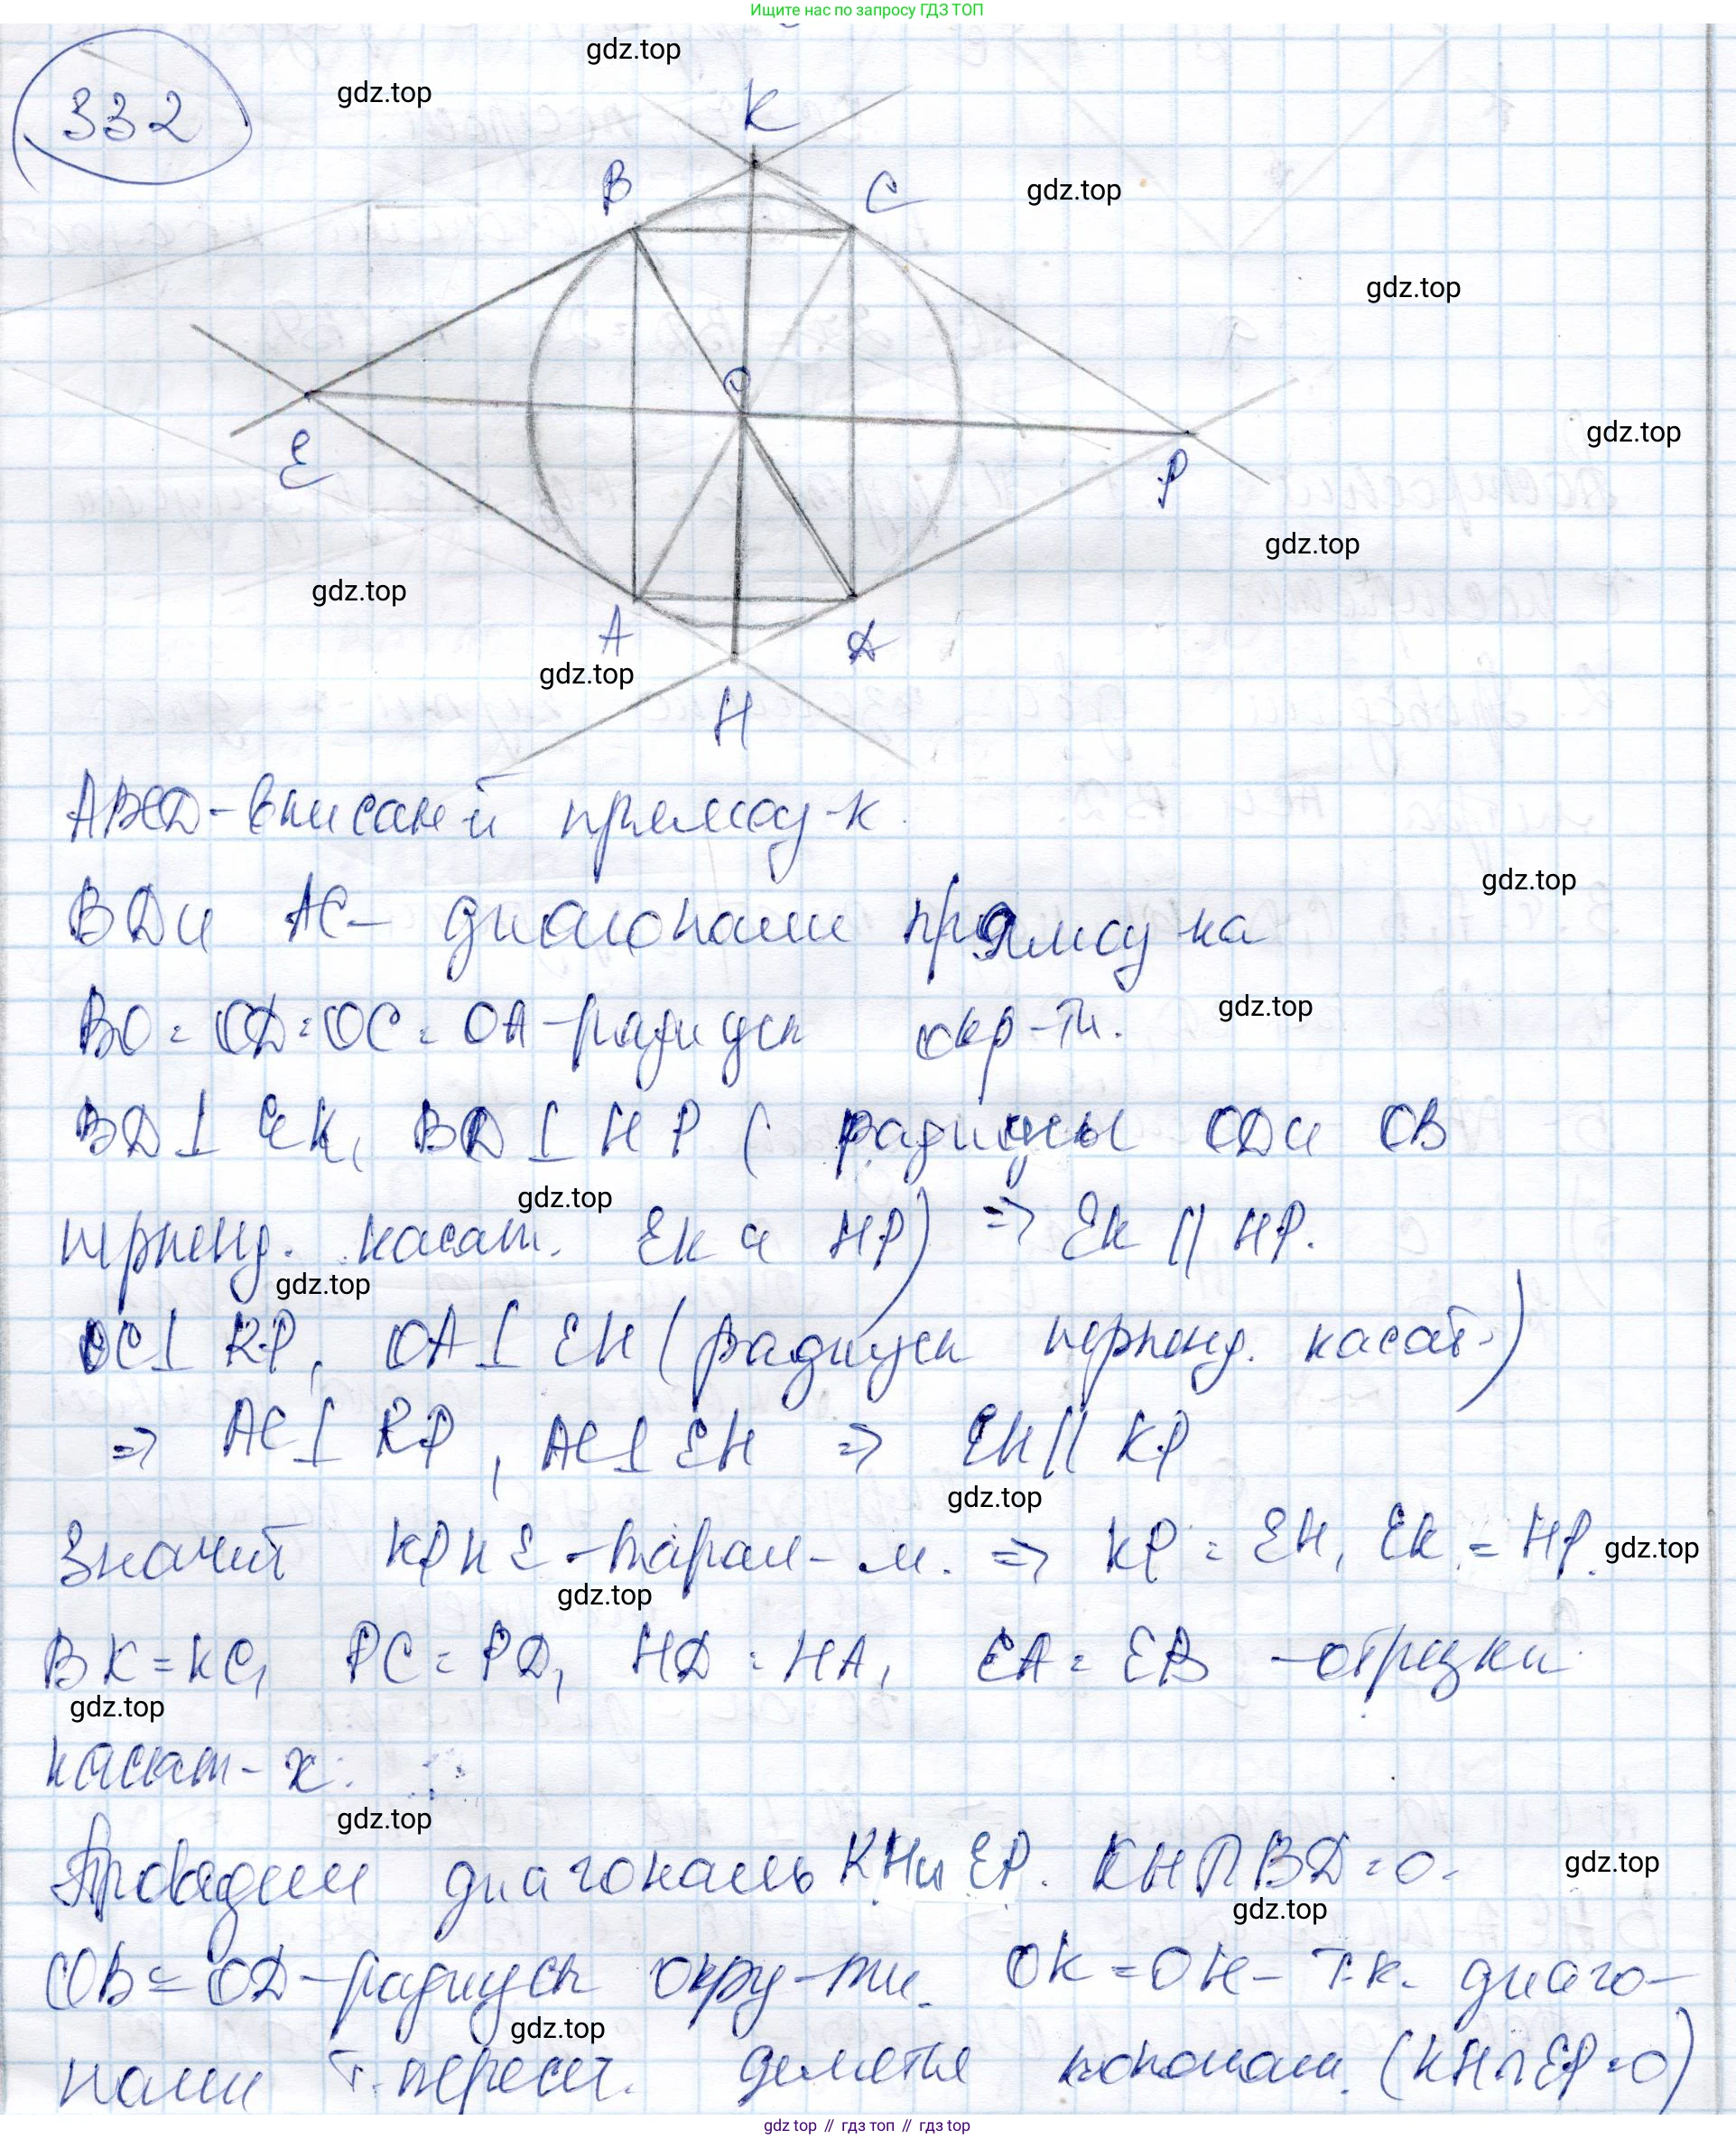 Ищите нас по запросу ГДЗ ТОП
gdz.top
332
gdz.top
K
B
C
gdz.top
gdz.top
O
E
P
gdz.top
gdz.top
gdz.top
A
Д
gdz.top
H
ABCД - вписан-й прямоуг-к.
gdz.top
BД и AC - диагонали прямоу-ка
BO = OД = OC = OA - радиусы окр-ти.
gdz.top
BД ⊥ EK, BД ⊥ HP ( радиусы OД и OB
gdz.top
перпенд. касат. EK и HP) => EK || HP.
gdz.top
OC ⊥ KP, OA ⊥ EH (радиусы перпенд. касат.)
=> AC ⊥ KP, AC ⊥ EH => EH || KP
gdz.top
Значит KPHE - парал-м. => KP = EH, EK = HP.
gdz.top
gdz.top
BK = KC, PC = PД, HД = HA, EA = EB - отрезки
gdz.top
касат-х.
gdz.top
Проведем диагональ KH и EP. KH ∩ BД = O.
gdz.top
gdz.top
OB = OД - радиусы окру-ти. OK = OH - т.к. диаго-
gdz.top
нали т. пересеч. делятся пополам. (KH ∩ EP = O)
gdz.top // гдз топ // гдз top